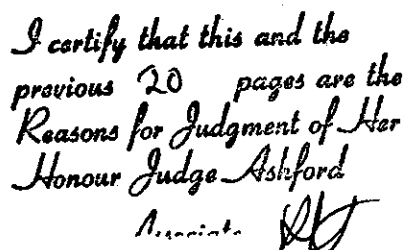 I certify that this and the
previous 20 pages are the
Reasons for Judgment of Her
Honour Judge Ashford
Associate